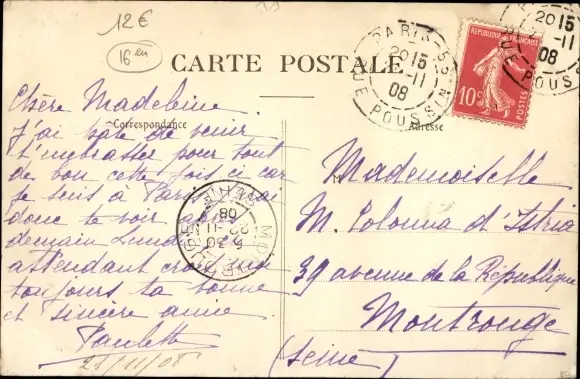 12€
16en
CARTE POSTALE
Correspondance
Adresse
Chère Madeleine
J'ai hâte de venir
t'embrasser pour tout
de bon cette fois ci car
je suis à Paris. J'irai
donc te voir après
demain Lundi
attendant crois moi
toujours ta bonne
et sincère amie.
Paulette
21/11/08
Mademoiselle
M. Colonna d'Istria
39 avenue de la République
Montrouge
(Seine)
RÉPUBLIQUE FRANÇAISE
10c
POSTES
PARIS-55
2015
-11
08
RUE POUSSIN
2015
-11
08
RUE POUSSIN
MONTROUGE
5 30
22-11
08
SEINE